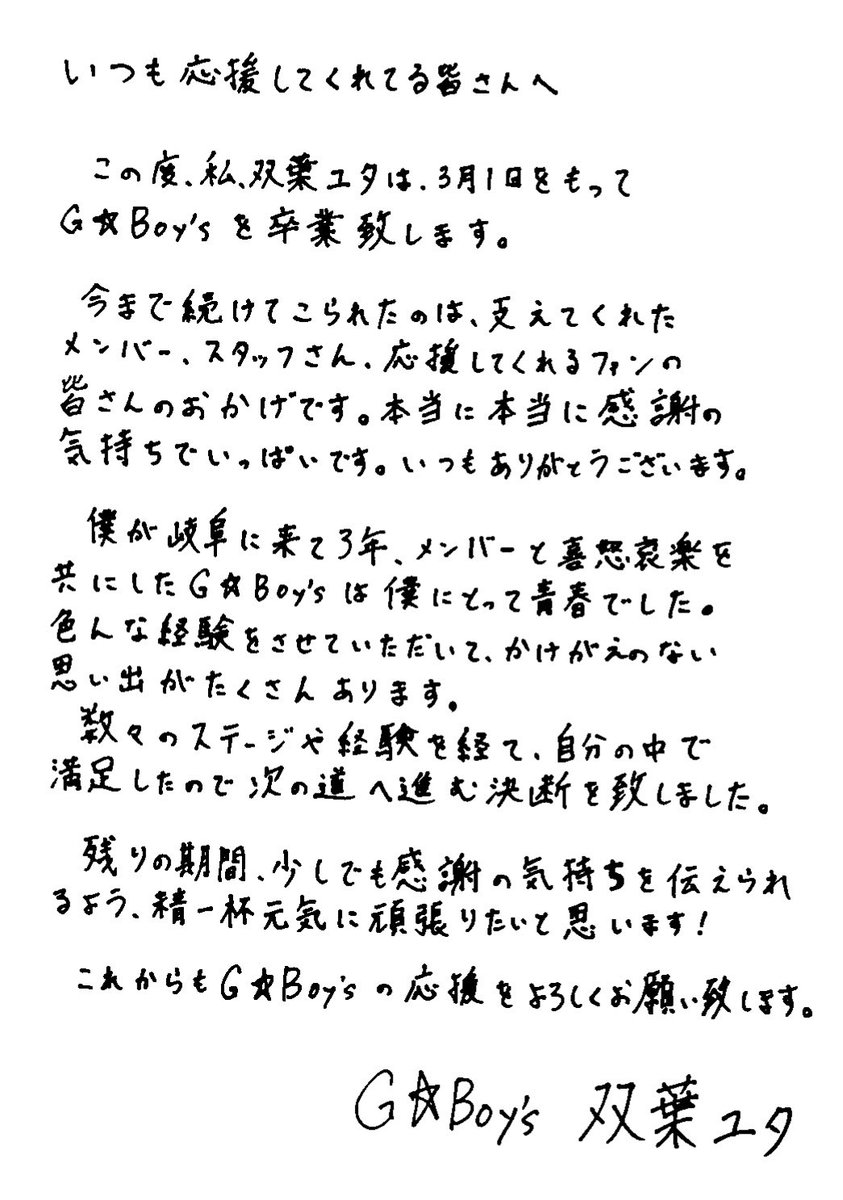 いつも応援してくれてる皆さんへ
この度、私、双葉ユタは、3月1日をもって
G☆Boy'sを卒業致します。
今まで続けてこられたのは、支えてくれた
メンバー、スタッフさん、応援してくれるファンの
皆さんのおかげです。本当に本当に感謝の
気持ちでいっぱいです。いつもありがとうございます。
僕が岐阜に来て3年、メンバーと喜怒哀楽を
共にしたG☆Boy'sは僕にとって青春でした。
色んな経験をさせていただいて、かけがえのない
思い出がたくさんあります。
数々のステージや経験を経て、自分の中で
満足したので次の道へ進む決断を致しました。
残りの期間、少しでも感謝の気持ちを伝えられ
るよう、精一杯元気に頑張りたいと思います!
これからもG☆Boy'sの応援をよろしくお願い致します。
G☆Boy's 双葉ユタ